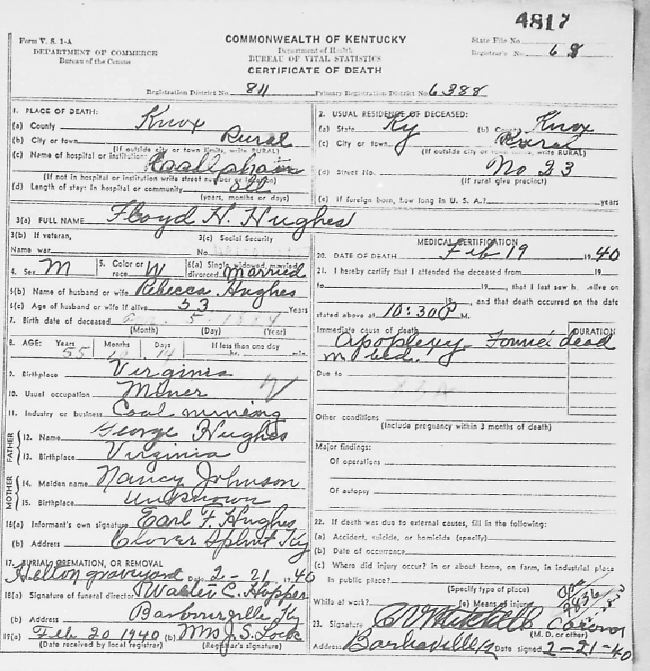 4817
Form V. S. 1-A
COMMONWEALTH OF KENTUCKY
State File No.
DEPARTMENT OF COMMERCE
Department of Health
Registrar's No. 68
Bureau of the Census
BUREAU OF VITAL STATISTICS
CERTIFICATE OF DEATH
Registration District No. 811 Primary Registration District No. 6388
1. PLACE OF DEATH:
(a) County Knox
(b) City or town Rural
(If outside city or town limits, write RURAL)
(c) Name of hospital or institution:
(If not in hospital or institution write street number or location)
(d) Length of stay: In hospital or community
(years, months or days)
2. USUAL RESIDENCE OF DECEASED:
(a) State Ky (b) County Knox
(c) City or town Rural
(If outside city or town limits, write RURAL)
(d) Street No. No 23
(If rural give precinct)
(e) If foreign born, how long in U. S. A.? years
3(a) FULL NAME Floyd H. Hughes
3(b) If veteran, 3(c) Social Security
Name war No.
4. Sex M 5. Color or race W 6(a) Single, widowed, married, divorced Married
6(b) Name of husband or wife Rebecca Hughes
6(c) Age of husband or wife if alive 53 Years
7. Birth date of deceased 5
(Month) (Day) (Year)
8. AGE: Years 55 Months Days 14 If less than one day
hr. min.
9. Birthplace Virginia
10. Usual occupation Miner
11. Industry or business Coal mining
FATHER
12. Name George Hughes
13. Birthplace Virginia
MOTHER
14. Maiden name Nancy Johnson
15. Birthplace Unknown
16(a) Informant's own signature Earl F. Hughes
(b) Address Clover Splint Ky
17. BURIAL, CREMATION, OR REMOVAL
Helton graveyard Date 2-21 1940
18(a) Signature of funeral director Walter C. Hopper
(b) Address Barbourville Ky
19(a) Feb 20 1940 (b) Mrs J. S. Lock
(Date received by local registrar) (Registrar's signature)
MEDICAL CERTIFICATION
20. DATE OF DEATH Feb 19 1940
21. I hereby certify that I attended the deceased from 19
to 19 , that I last saw h alive on
19 , and that death occurred on the date
stated above at 10:30 P M.
Immediate cause of death DURATION
Apoplexy Found dead
in bed.
Due to
Other conditions
(Include pregnancy within 3 months of death)
Major findings:
Of operations
Of autopsy
22. If death was due to external causes, fill in the following:
(a) Accident, suicide, or homicide (specify)
(b) Date of occurrence
(c) Where did injury occur? in or about home, on farm, in industrial place
in public place?
(Specify type of place)
While at work? (e) Means of injury
23. Signature Mitchell Coroner
(M. D. or other)
Address Date signed 2-21-40